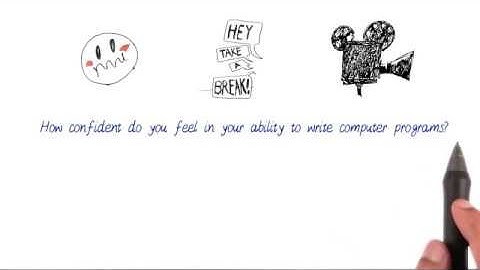 HEY
TAKE
A
BREAK!
How confident do you feel in your ability to write computer programs?